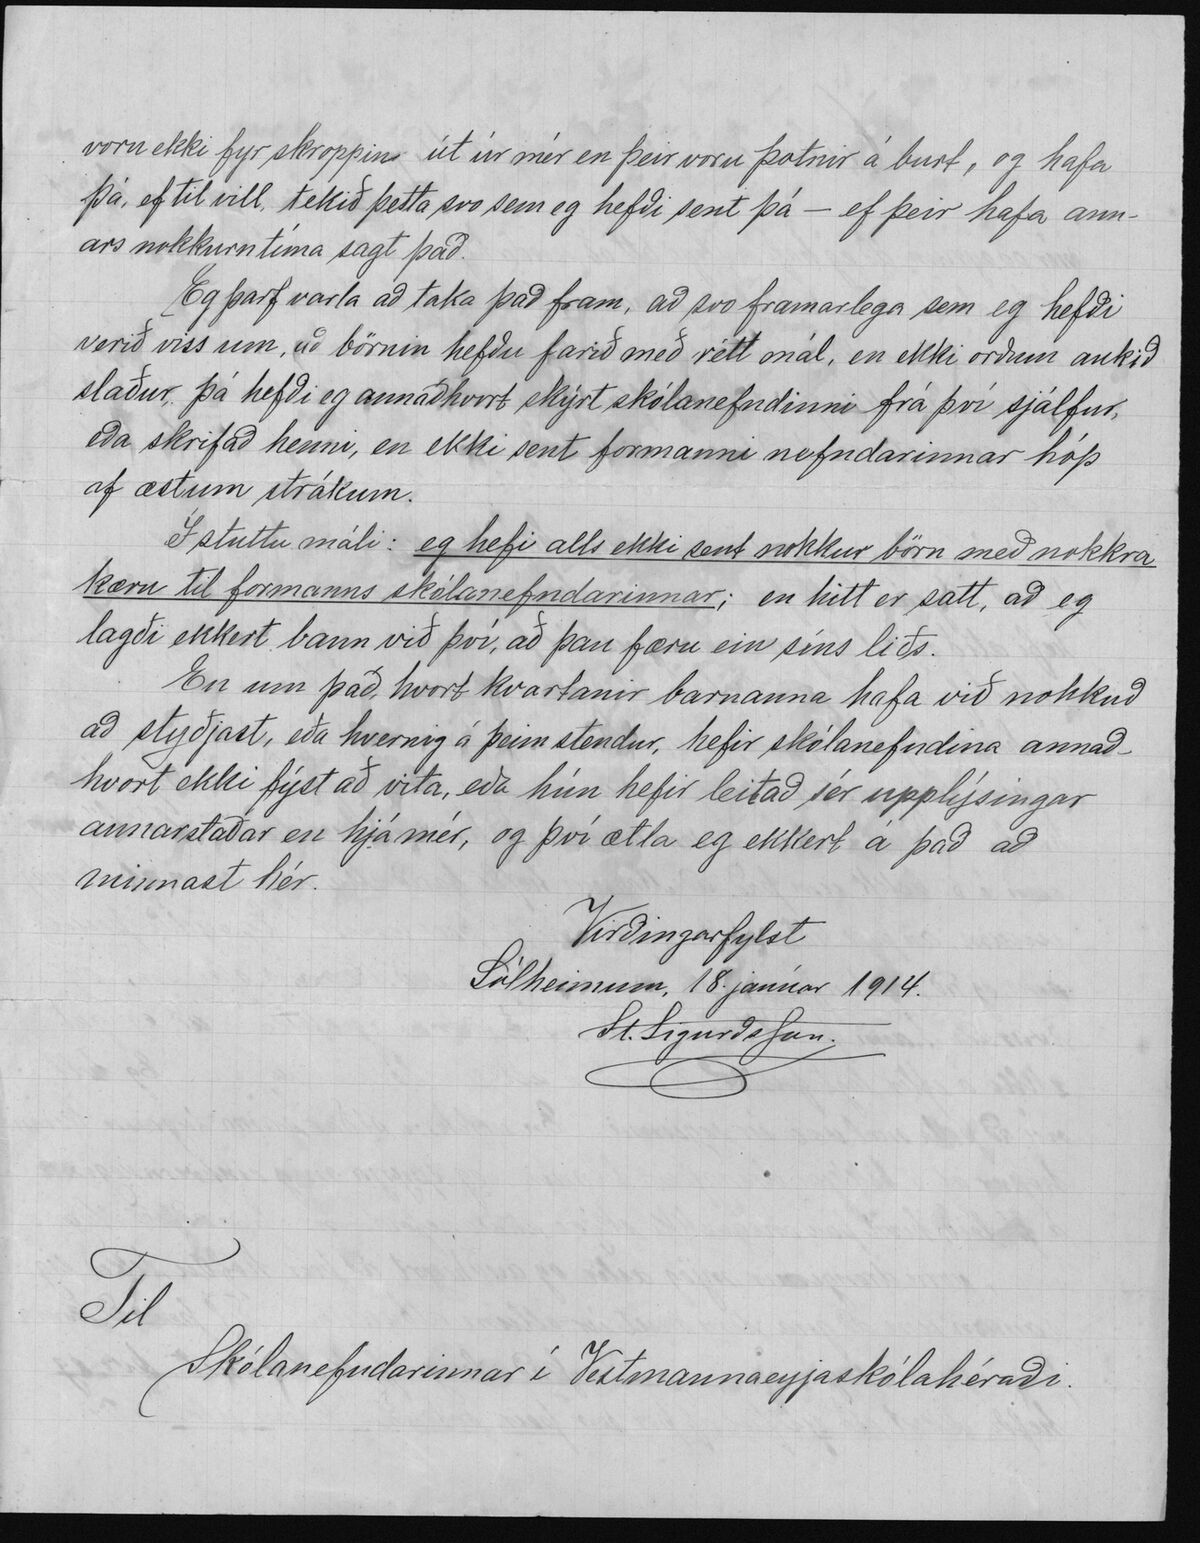 voru ekki fyr skroppin út úr mér en þeir voru þotnir á burt, og hafa
þá, ef til vill, tekið þetta svo sem eg hefði sent þá — ef þeir hafa ann-
ars nokkurntíma sagt það.
Eg þarf varla að taka það fram, að svo framarlega sem eg hefði
verið viss um, að börnin hefðu farið með rétt mál, en ekki orðum aukið
slaður, þá hefði eg annaðhvort skýrt skólanefndinni frá því sjálfur,
eða skrifað henni, en ekki sent formanni nefndarinnar hóp
af æstum strákum.
Í stuttu máli: eg hefi alls ekki sent nokkur börn með nokkra
kæru til formanns skólanefndarinnar; en hitt er satt, að eg
lagði ekkert bann við því, að þau færu ein síns liðs.
En um það, hvort kvartanir barnanna hafa við nokkuð
að styðjast, eða hvernig á þeim stendur, hefir skólanefndina annað-
hvort ekki fýst að vita, eða hún hefir leitað sér upplýsingar
annarstaðar en hjá mér, og því ætla eg ekkert á það að
minnast hér.
Virðingarfylst
Sólheimum, 18. janúar 1914.
St. Sigurðsson.
Til
Skólanefndarinnar í Vestmannaeyjaskólahéraði.